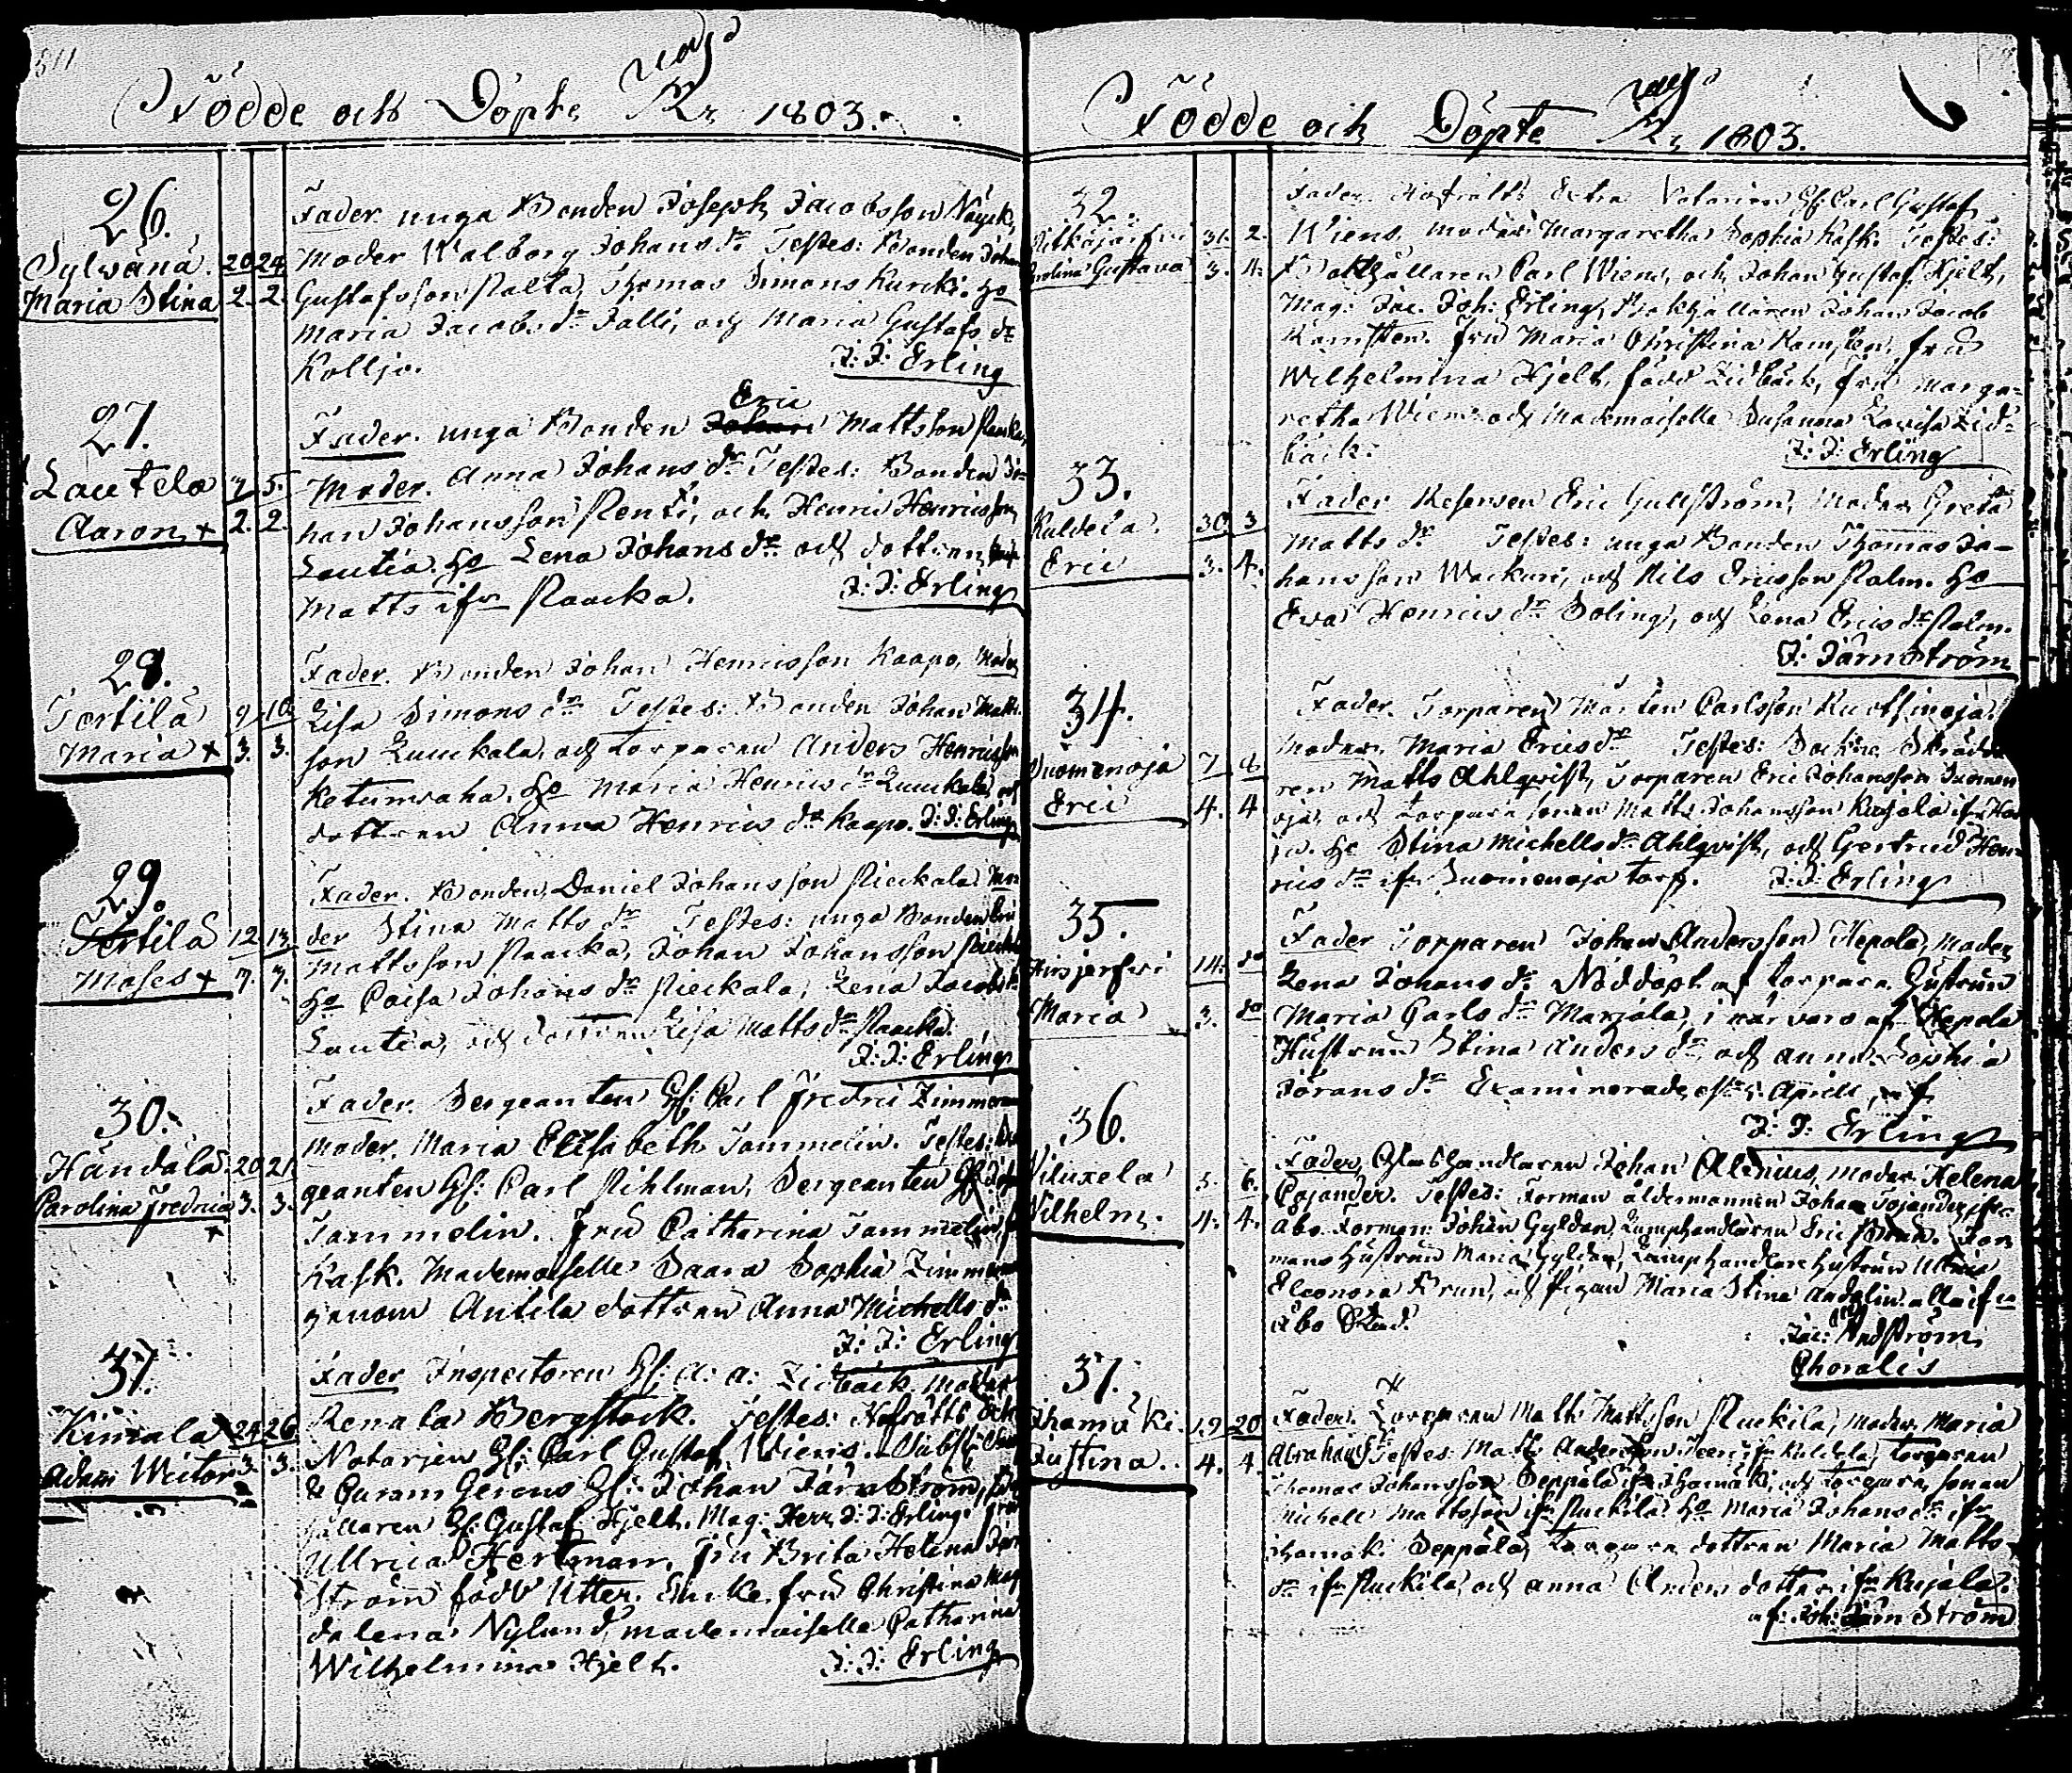 Födde och Döpte År 1803.
26.
Sylwänä. 20 24
Maria Stina 2. 2.
Fader unga Bonden Joseph Jacobsson
Moder Walborg Johans dr Testes: Bonden Johan
Gustafsson Thomas Simons Kurcki. Ho
Maria Jacobs dr Jalli, och Maria Gustafs dr
Kolljo. J: J: Erling
27.
Lautela 4 5.
Aaron + 2. 2.
Eric
Fader. unga Bonden Johan Mattsson
Moder. Anna Johans dr Testes: Bonden Jo-
han Johansson Penti, och Henric Henricsson
Lautia. Ho Lena Johans dr och dottren
Matts ifr Paacka. J: J: Erling
28.
Tortila 9 10.
Maria + 3. 3.
Fader. Bonden Johan Henricsson Kaapo, Moder
Lisa Simons dr Testes: Bonden Johan Matts
son Luuckala, och Torparen Anders Henricsson
Ketunraha. Ho Maria Henrics dr Luuckala och
dottren Anna Henrics dr Kaapo. J: J: Erling
29.
Tortila 12. 13.
Moses + 7. 7.
Fader. Bonden Daniel Johansson Pieckala Mo
der Stina Matts dr Testes: unga Bonden Eric
Mattsson Paacka, Johan Johansson Pieckala
Ho Caisa Johans dr Pieckala, Lena Jacobs dr
Lautia, och dottren Lisa Matts dr Paacka.
J: J: Erling
30.
Händälä. 20 21.
Carolina Fredrica 3. 3.
+
Fader. Sergeanten H: Carl Fredric Zimmerman
Moder. Maria Elisabeth Tammelin. Testes: Ser
geanten H: Carl Pihlman, Sergeanten H: Joh
Tammelin. Fru Catharina Tammelin, f
Kask. Mademoiselle Saara Sophia Zimmerman
genom Antila dottren Anna Michells dr
J: J: Erling
31.
Kimala 24 26
Adam Victor 3. 3.
Fader Inspectoren H: A: A: Lidbäck, Moder
Renata Bergstock. Testes: Hofrätts Extra
Notarien H: Carl Gustaf Wiens. Subst:
& Curam Gerens H: Johan Järnström, Bok
hållaren H: Gustaf Hjelt. Mag: Herr J: J: Erling. Fru
Ullrica Hertman, Fru Brita Helena Järn
ström född Utter. Enke fru Christina Mag
dalena Nylund, mademoiselle Catharina
Wilhelmina Hjelt. J: J: Erling
Födde och Döpte År 1803.
32.
Pitkäjärfvi 31. 2.
Carolina Gustava 3. 4.
Fader. Hofrätts Extra Notarien H: Carl Gustaf
Wiens. Moder Margaretha Sophia Kask. Testes:
Bokhållaren Carl Wiens, och Johan Gustaf Hjelt,
Mag: Jac. Joh: Erling, Bokhållaren Johan Jacob
Kamsten. Fru Maria Christina Kamsten, fru
Wilhelmina Hjelt, född Lidbäck, fru Marga-
retha Wiens och Mademoiselle Susanna Lovisa Lid-
bäck. J: J: Erling
33.
Kuldela. 30 3
Eric 3. 4.
Fader Reserven Eric Gullström, Moder Greta
Matts dr Testes: unga Bonden Thomas Jo-
hansson Wackuri, och Nils Ericsson Palm. Ho
Eva Henrics dr Soling, och Lena Erics dr Palm.
J: Järnström
34.
Suomenoja 7 8
Eric 4. 4
Fader. Torparen Mårten Carlsson Ruotsinoja.
Moder. Maria Erics dr Testes: Sockne Skrädda
ren Matts Ahlqvist, Torparen Eric Johansson Suomen
oja, och Torpare sonen Matts Johansson Kujala ifr Har
ju. Ho Stina Michells dr Ahlqvist, och Gertrud Hen-
rics dr ifr Suomenoja torp. J: J: Erling
35.
Hirsjerfvi 14. do
Maria 3. do
Fader Torparen Johan Andersson Hepola, Moder
Lena Johans dr Nöddöpt af torpare Hustrun
Maria Carls dr Marjala, i närvaro af Hepola
Hustrun Stina Anders dr och Anna Sophia
Jörans dr Examinerade, 5 Aprill, af
J: J: Erling
36.
Viluxela 5. 6.
Vilhelm. 4. 4.
Fader, Glashandlaren Johan Alenius, Moder Helena
Cajander. Testes: Forman åldermannen Johan Cajander ifr
Åbo. Forman: Johan Gyldan, Lumphandlaren Eric Brun. For
mans Hustrun Maria Gyldan, Lumphandlare hustrun Ulrica
Eleonora Brun, och Pigan Maria Stina Andelin alla ifrån
Åbo Stad.
Jac: Lindström
Choralis
37.
Ihamäki. 19 20
Justina. 4. 4
Fader. Torparen Matts Mattsson Ruckila, Moder Maria
Abrahams dr Testes: Matts Andersson ifr Kuldela, Torparen
Thomas Johansson Seppälä ifr Ihamäki, och Torpare sonen
Michell Mattsson ifr Ruckila. Ho Maria Johans dr ifr
Ihamäki Seppälä, Torpare dottren Maria Matts
dr ifr Ruckila, och Anna Anders dotter ifr Kujala.
af: Joh: Järnström